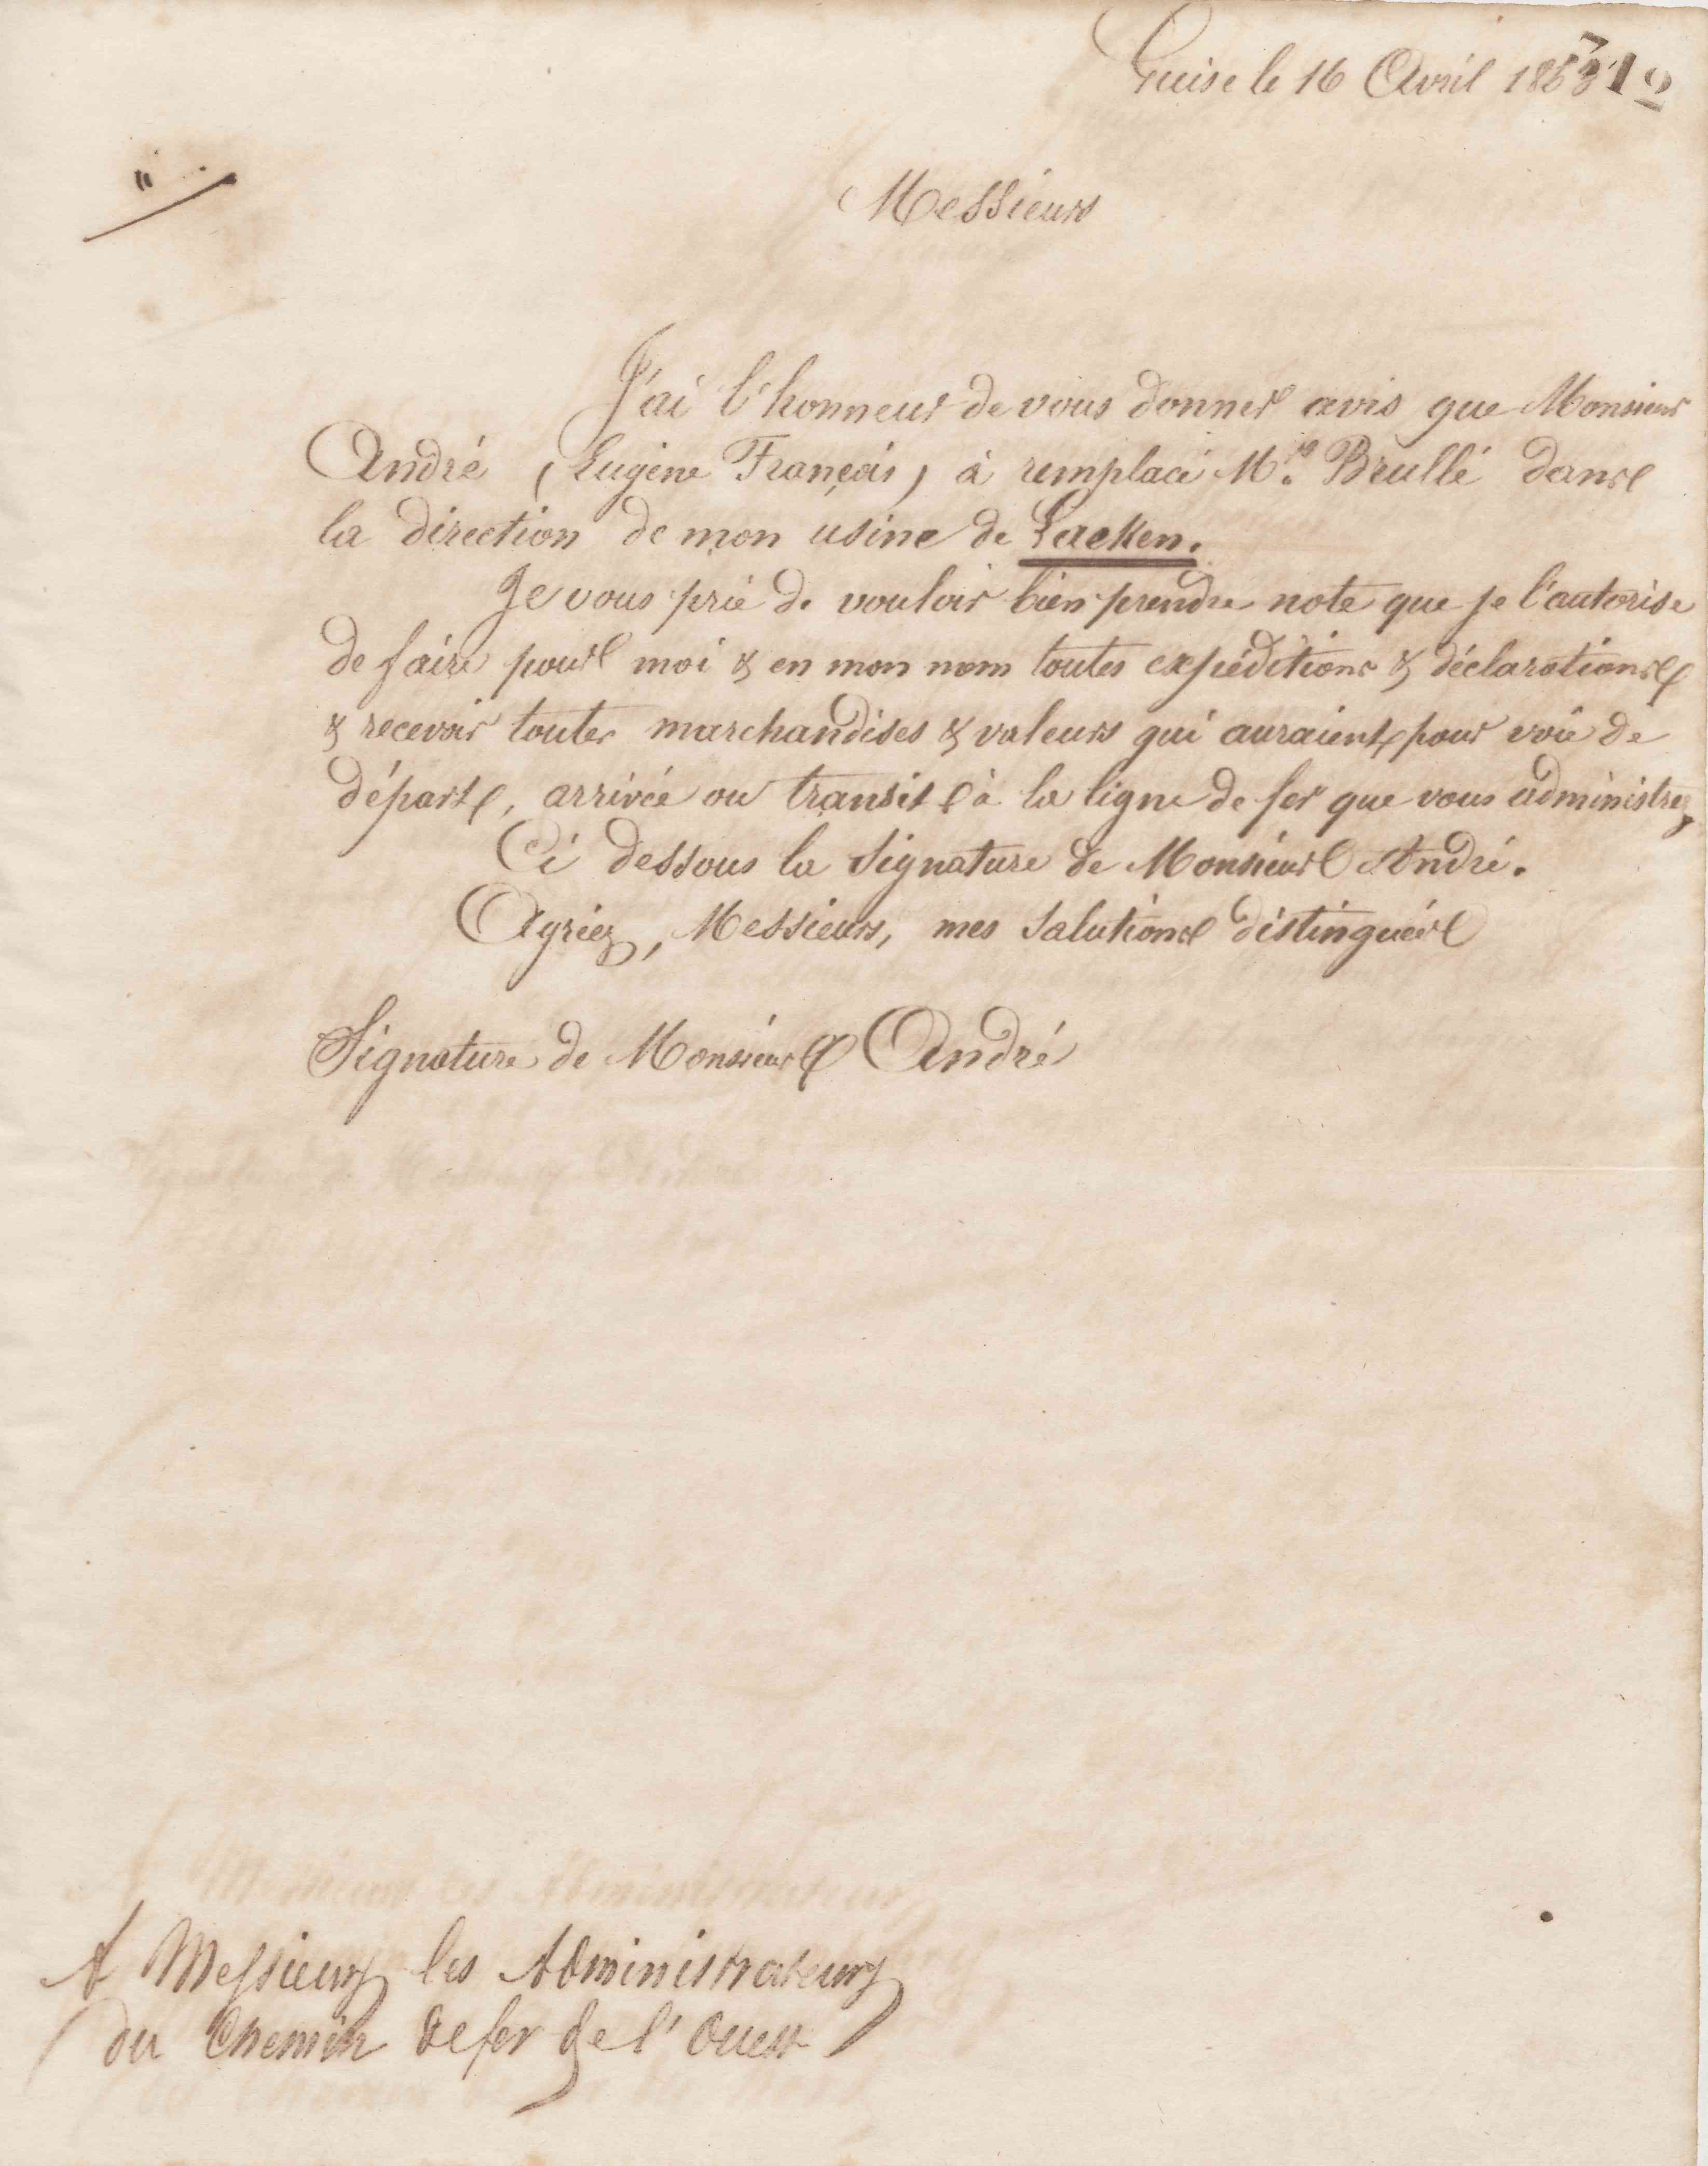 Guise le 16 Avril 1863
Messieurs
J'ai l'honneur de vous donner avis que Monsieur
André (Eugène François) à remplacé Mr. Brullé dans
la direction de mon usine de Laeken.
Je vous prie de vouloir bien prendre note que je l'autorise
de faire pour moi & en mon nom toutes expéditions & déclarations
& recevoir toutes marchandises & valeurs qui auraient pour voie de
départ, arrivée ou transit à la ligne de fer que vous administrez,
Ci dessous la signature de Monsieur André.
Agréez, Messieurs, mes salutions distinguées
Signature de Monsieur André
A Messieurs les Administrateurs
du Chemin de fer de l'Ouest